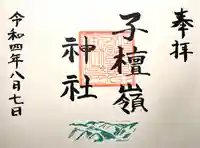 奉拝
子檀嶺
神社
令和四年八月七日